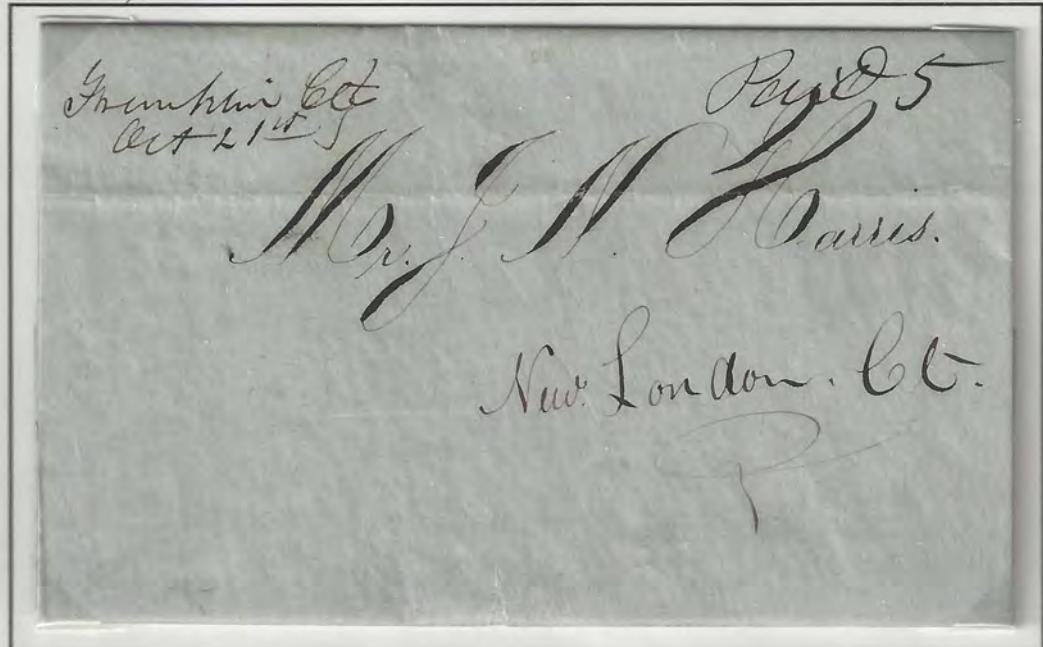 Franklin Ct
Oct 21st
Paid 5
Mr. J. N. Harris.
New London. Ct.